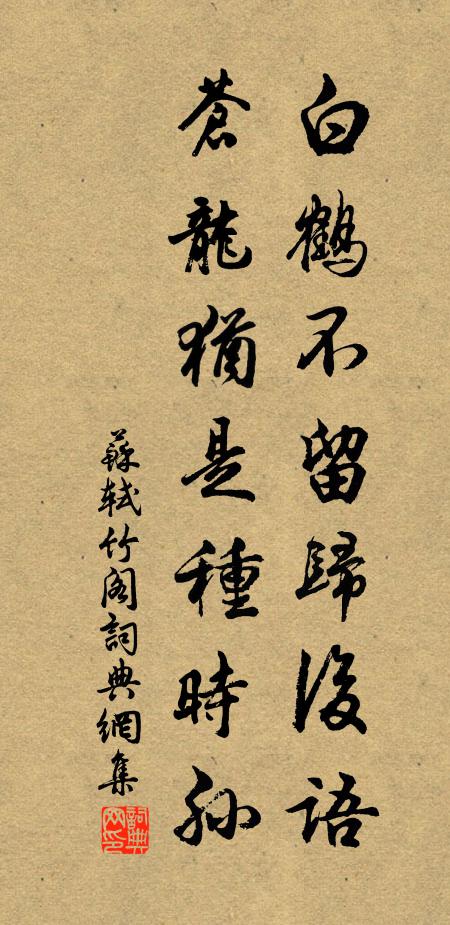 白鶴不留歸後語
蒼龍猶是種時孫
蘇軾竹閣詞典網集
詞典网印